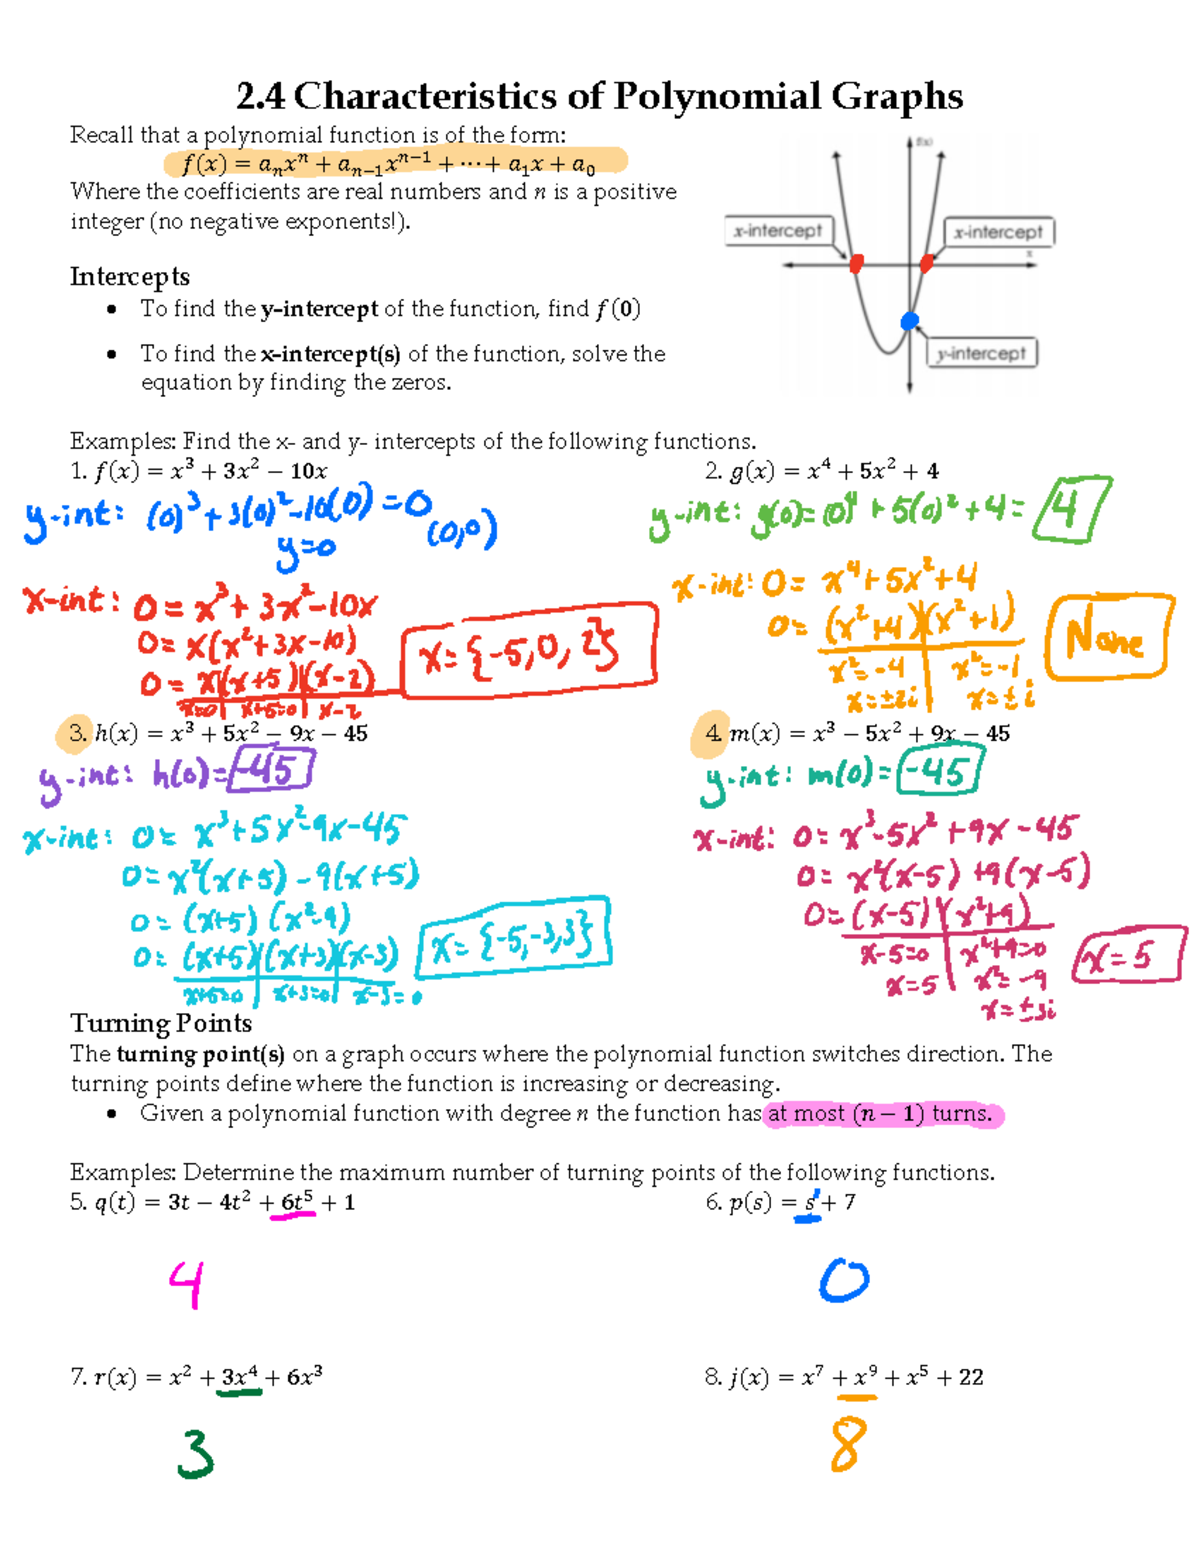 2.4 Characteristics of Polynomial Graphs
Recall that a polynomial function is of the form:
f(x) = aₙxⁿ + aₙ₋₁xⁿ⁻¹ + ⋯ + a₁x + a₀
Where the coefficients are real numbers and n is a positive
integer (no negative exponents!).
f(x)
x-intercept
x-intercept
x
y-intercept
Intercepts
• To find the y-intercept of the function, find f(0)
• To find the x-intercept(s) of the function, solve the
equation by finding the zeros.
Examples: Find the x- and y- intercepts of the following functions.
1. f(x) = x³ + 3x² − 10x
y-int: (0)³+3(0)²-10(0)=0
y=0 (0,0)
x-int: 0=x³+3x²-10x
0=x(x²+3x-10)
0=x(x+5)(x-2)
x=0 x+5=0 x-2
x={-5,0,2}
2. g(x) = x⁴ + 5x² + 4
y-int: g(0)=(0)⁴+5(0)²+4=4
x-int: 0=x⁴+5x²+4
0=(x²+4)(x²+1)
x²=-4 x²=-1
x=±2i x=±i
None
3. h(x) = x³ + 5x² − 9x − 45
y-int: h(0)=-45
x-int: 0=x³+5x²-9x-45
0=x²(x+5)-9(x+5)
0=(x+5)(x²-9)
0=(x+5)(x+3)(x-3)
x+5=0 x+3=0 x-3=0
x={-5,-3,3}
4. m(x) = x³ − 5x² + 9x − 45
y-int: m(0)=-45
x-int: 0=x³-5x²+9x-45
0=x²(x-5)+9(x-5)
0=(x-5)(x²+9)
x-5=0 x²+9=0
x=5 x²=-9
x=±3i
x=5
Turning Points
The turning point(s) on a graph occurs where the polynomial function switches direction. The
turning points define where the function is increasing or decreasing.
• Given a polynomial function with degree n the function has at most (n − 1) turns.
Examples: Determine the maximum number of turning points of the following functions.
5. q(t) = 3t − 4t² + 6t⁵ + 1
4
6. p(s) = s¹ + 7
0
7. r(x) = x² + 3x⁴ + 6x³
3
8. j(x) = x⁷ + x⁹ + x⁵ + 22
8